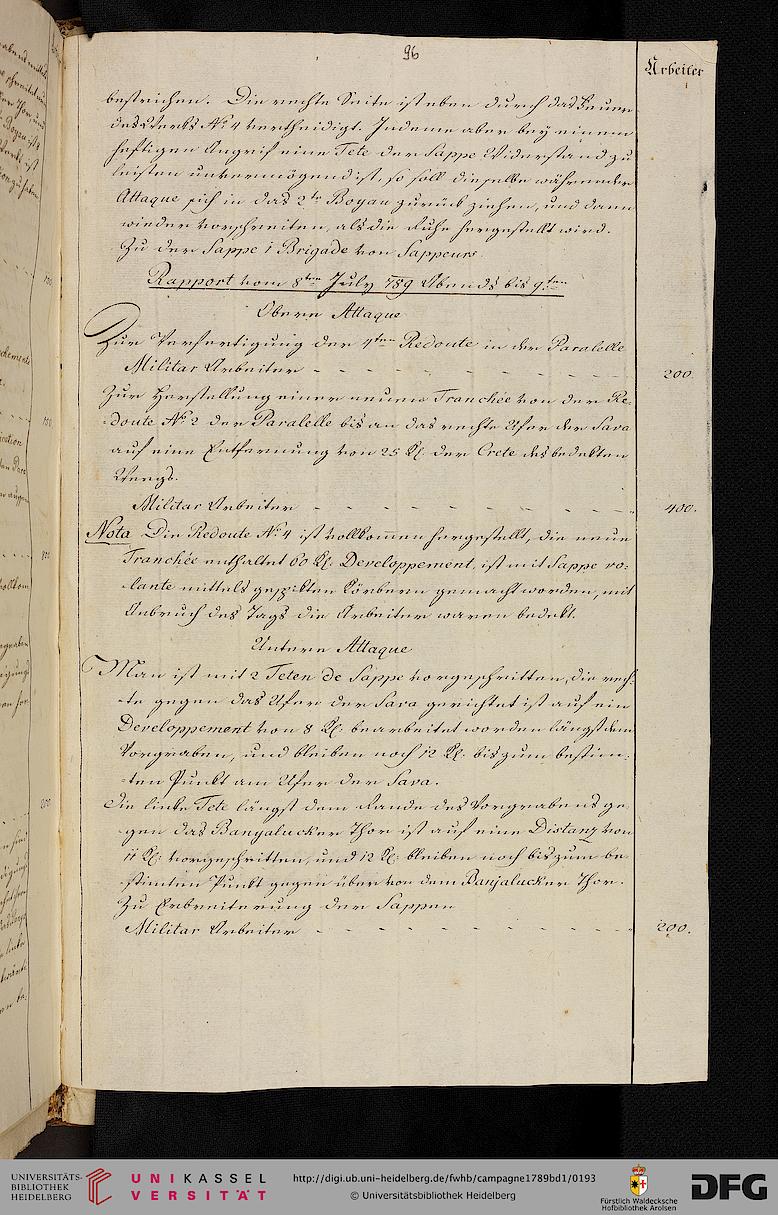 96
Arbeiter
bestrichen. Die rechte Seite ist eben durch das Feuer
des Werks No 4 vertheidigt. Indeme aber bey einem
heftigen Angrif eine Tete der Sappe Widerstand zu
leisten unvermögend ist, so soll dieselbe während der
Attaque sich in das 2te Boyau zurück ziehen, und dann
wieder vorschreiten, als die Ruhe hergestellt wird.
Zu der Sappe 1 Brigade von Sappeurs
Rapport vom 8ten July 789 Abends bis 9ten
Obere Attaque
Zur Verfertigung der 4ten Redoute in der Paralelle
Militar Arbeiter - - - - - - - - - 200.
Zur Herstellung einer neuen Tranchée von der Re-
doute No 2 der Paralelle bis an das rechte Ufer der Sava
auf eine Entfernung von 25 Kl. der Crete des bedekten
Weegs.
Militar Arbeiter - - - - - - - - - 400.
Nota Die Redoute No 4 ist vollkommen hergestellt, die neue
Tranchée enthaltet 60 Kl. Developpement, ist mit Sappe vo-
lante mittels gespikten Körben gemacht worden, mit
Anbruch des Tags die Arbeiter waren bedekt.
Untere Attaque
Man ist mit 2 Teten de Sappe vorgeschritten, die rech-
te gegen das Ufer der Sava gerichtet ist auf ein
Developpement von 8 Kl. bearbeitet worden längst dem
Vorgraben, und bleiben noch 12 Kl. bis zum bestim-
ten Punkt am Ufer der Sava.
Die linke Tete längst dem Rande des Vorgrabens ge-
gen das Banyalucker Thor ist auf eine Distanz von
11 Kl. vorgeschritten, und 12 Kl. bleiben noch bis zum be-
stimten Punkt gegen über von dem Banjalucker Thor.
Zu Erbreiterung der Sappen
Militar Arbeiter - - - - - - - - - 200.
UNIVERSITÄTS-
BIBLIOTHEK
HEIDELBERG
UNIKASSEL
VERSITÄT
http://digi.ub.uni-heidelberg.de/fwhb/campagne1789bd1/0193
© Universitätsbibliothek Heidelberg
Fürstlich Waldecksche
Hofbibliothek Arolsen
DFG